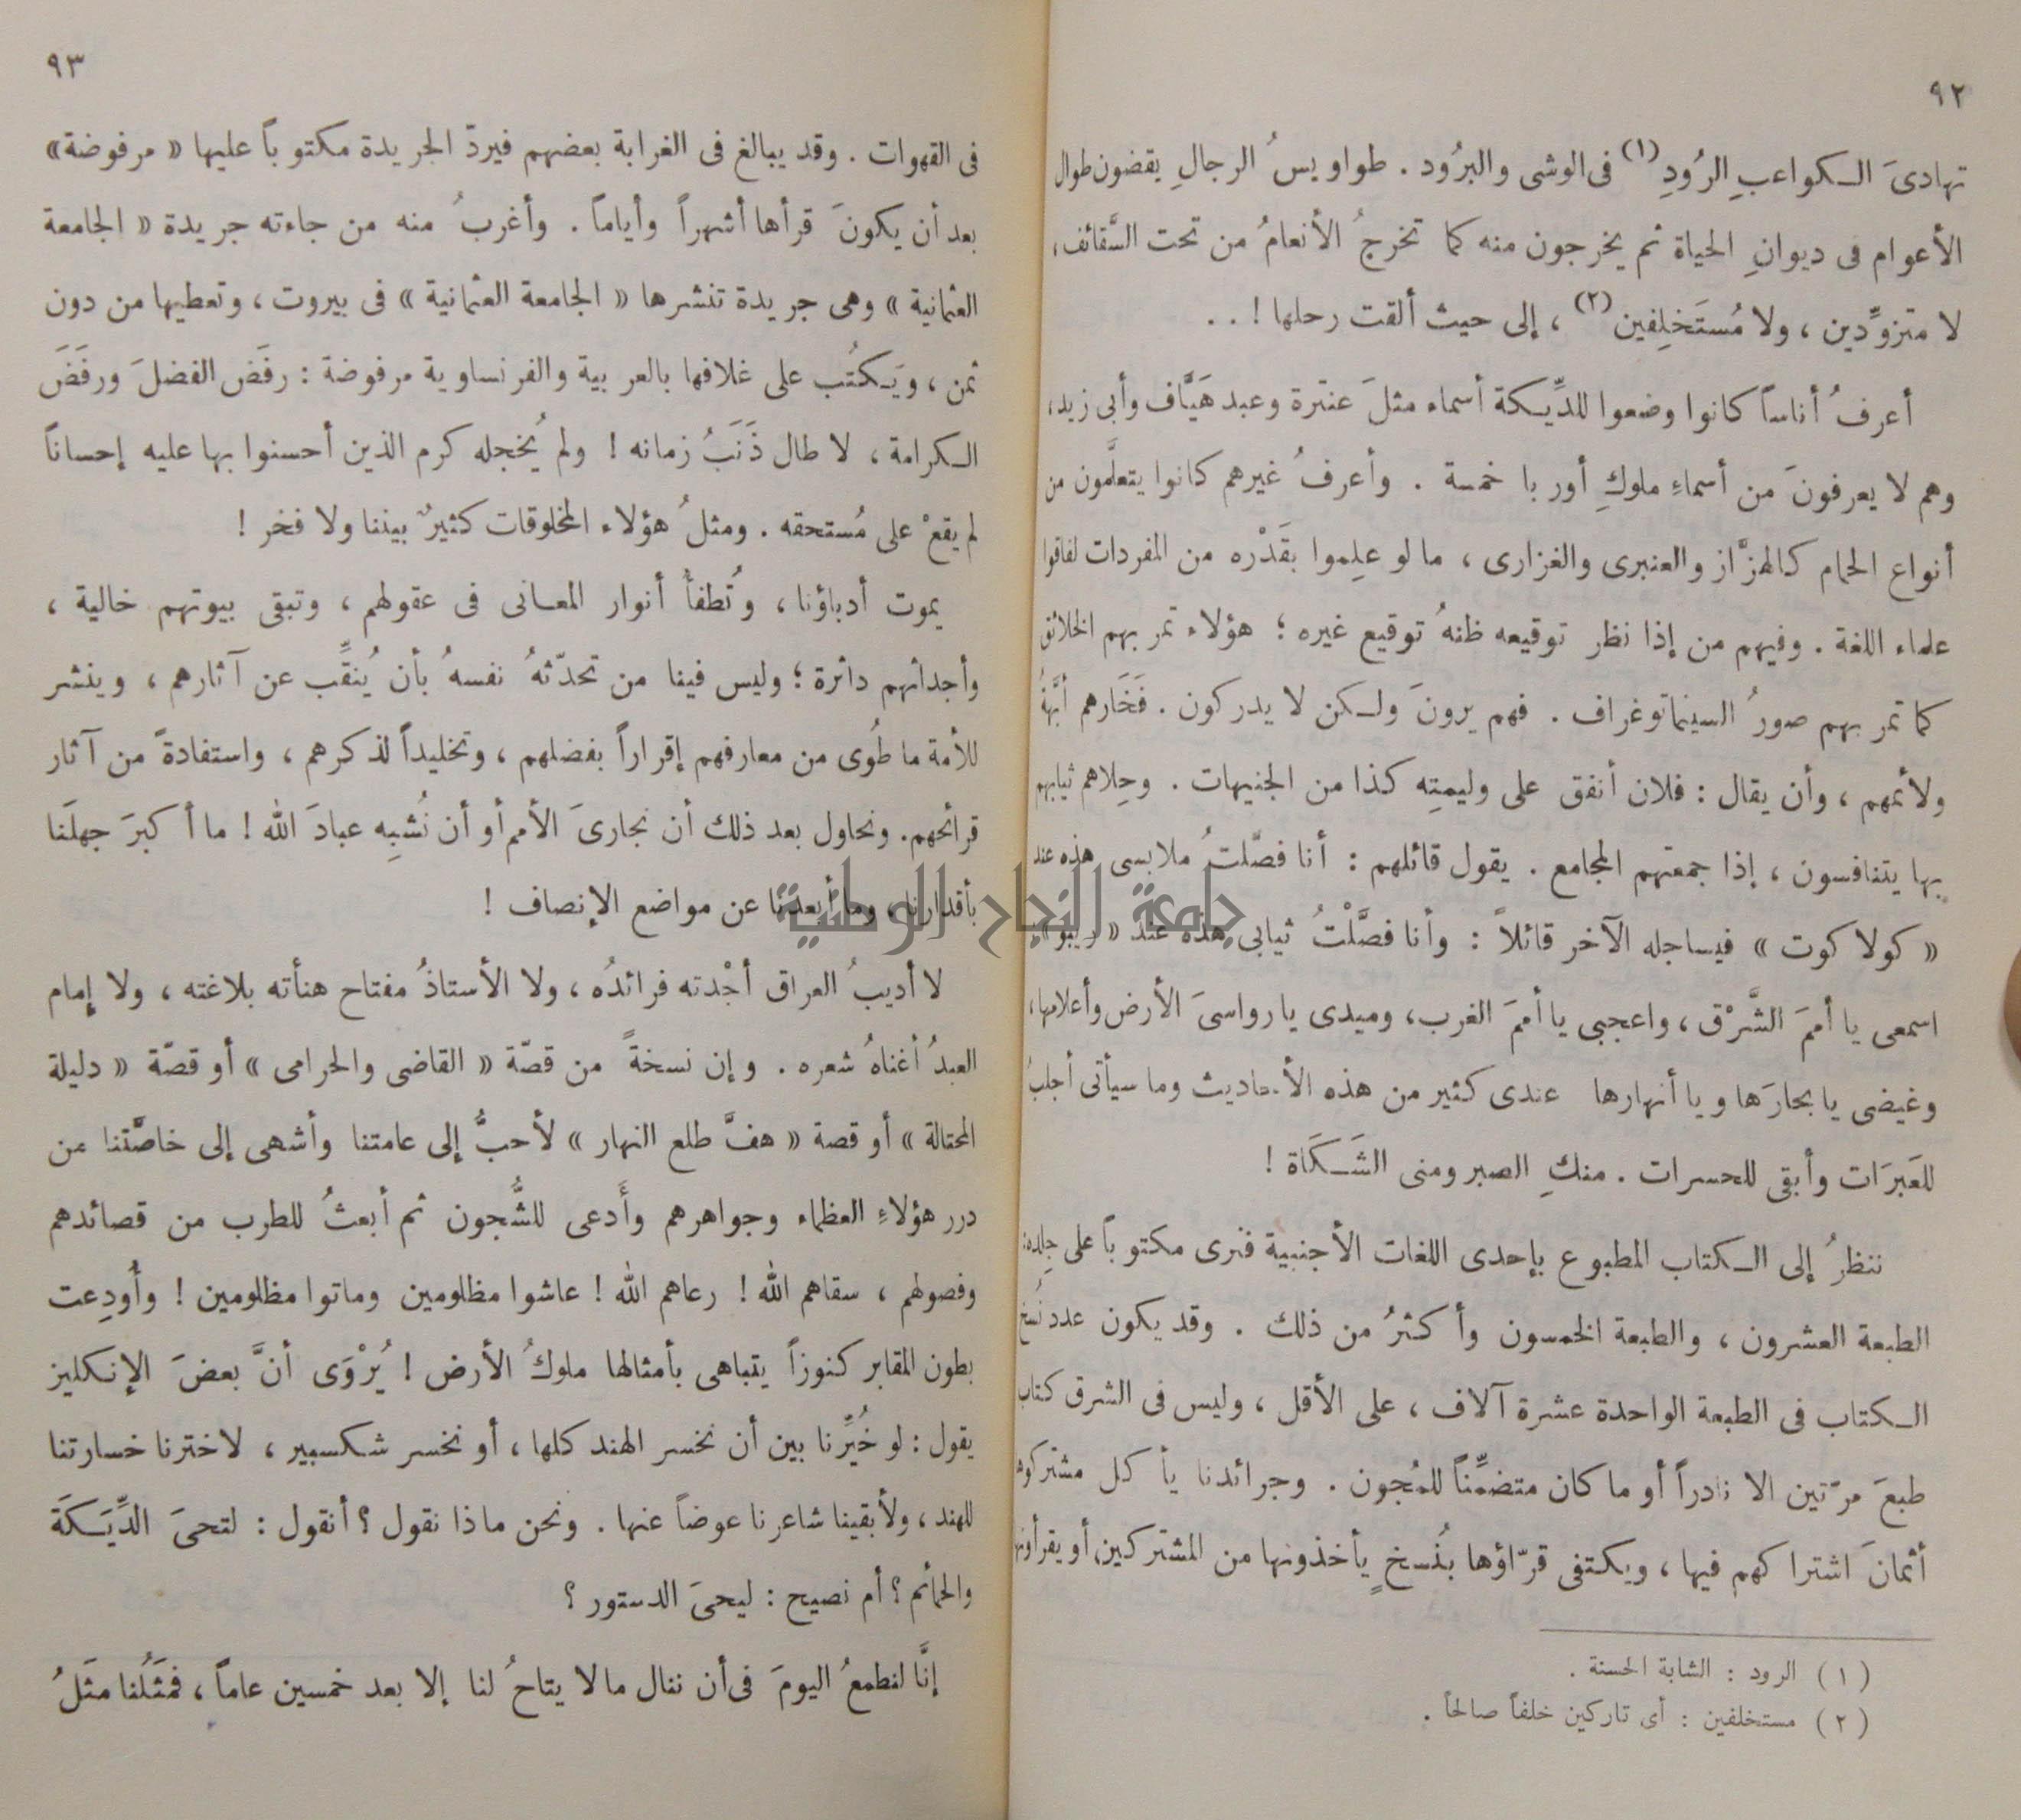 ٩٢
تهادىَ الـكواعبِ الرُودِ (١) فى الوشى والبرُود . طواويسُ الرجالِ يقضون طوال
الأعوام فى ديوانِ الحياة ثم يخرجون منه كما تخرجُ الأنعامُ من تحت السَّقائف ،
لا متزوِّدين ، ولا مُستَخلِفين (٢) ، إلى حيث ألقت رحلها ! . .
أعرفُ أناساً كانوا وضعوا للدِّيـكة أسماء مثلَ عنترة وعبد هَيَّاف وأبى زيد ،
وهم لا يعرفونَ من أسماءِ ملوكِ أوربا خمسة . وأعرفُ غيرهم كانوا يتعلَّمون من
أنواع الحمام كالهزَّاز والعنبرى والغزارى ، ما لو علِموا بقَدْره من المفردات لفاقوا
علماء اللغة . وفيهم من إذا نظر توقيعه ظنهُ توقيع غيره ؛ هؤلاء تمر بهم الخلائق
كما تمر بهم صورُ السينماتوغراف . فهم يرونَ ولـكن لا يدركون . فَخَارهم أبَّهةُ
ولائمهم ، وأن يقال : فلان أنفق على وليمتِه كذا من الجنيهات . وحِلاهم ثيابهم
بها يتنافسون ، إذا جمعتهم المجامع . يقول قائلهم : أنا فصّلتُ ملابسى هذه عند
« كولا كوت » فيساجله الآخر قائلاً : وأنا فصَّلْتُ ثيابى هذه عند «
اسمعى يا أممَ الشَّرْق ، واعجبى يا أممَ الغرب ، وميدى يا رواسىَ الأرض وأعلامها ،
وغيضى يا بحارَها ويا أنهارها عندى كثير من هذه الأحاديث وما سيأتى أجلبُ
للعَبرَات وأبقى للحسرات . منكِ الصبر ومنى الشَـكَاة !
ننظرُ إلى الـكتاب المطبوع بإحدى اللغات الأجنبية فنرى مكتوباً على جِلده :
الطبعة العشرون ، والطبعة الخمسون وأكثرُ من ذلك . وقد يكون عدد نُسخ
الـكتاب فى الطبعة الواحدة عشرة آلاف ، على الأقل ، وليس فى الشرق كتاب
طبعَ مرّتين الا نادراً أو ما كان متضمِّناً للمُجون . وجرائدنا يأكل مشتركوها
أثمانَ اشتراكهم فيها ، ويكتفى قرّاؤها بنُسخٍ يأخذونها من المشتركين ، أو يقرأونها
(١) الرود : الشابة الحسنة .
(٢) مستخلفين : أى تاركين خلفاً صالحاً .
٩٣
فى القهوات . وقد يبالغ فى الغرابة بعضهم فيردّ الجريدة مكتوباً عليها « مرفوضة »
بعد أن يكونَ قرأها أشهراً وأياماً . وأغربُ منه من جاءته جريدة « الجامعة
العثمانية » وهى جريدة تنشرها « الجامعة العثمانية » فى بيروت ، وتعطيها من دون
ثمن ، ويَـكتُب على غلافها بالعربية والفرنساوية مرفوضة : رفَض الفضلَ ورفَضَ
الـكرامة ، لا طال ذَنَبُ زمانه ! ولم يُخجله كرم الذين أحسنوا بها عليه إحساناً
لم يقعْ على مُستحقه . ومثلُ هؤلاء المخلوقات كثيرٌ بيننا ولا فخر !
يموت أدباؤنا ، وتُطفأُ أنوار المعـانى فى عقولهم ، وتبقى بيوتهم خالية ،
وأجداثهم داثرة ؛ وليس فينا من تحدّثهُ نفسهُ بأن يُنقِّب عن آثارهم ، وينشر
للأمة ما طُوى من معارفهم إقراراً بفضلهم ، وتخليداً لذكرهم ، واستفادةً من آثار
قرائحهم . ونحاول بعد ذلك أن نجارىَ الأمم أو أن نُشبِه عبادَ الله ! ما أكبرَ جهلَنا
بأقدارنا ، وما أبعدنا عن مواضع الإنصاف !
لا أديبُ العراق أجْدته فرائدُه ، ولا الأستاذُ مفتاح هنأته بلاغته ، ولا إمام
العبدُ أغناهُ شعره . وإن نسخةً من قصّة « القاضى والحرامى » أو قصّة « دليلة
المحتالة » أو قصة « هفَّ طلع النهار » لأحبُّ إلى عامتنا وأشهى إلى خاصَّتنا من
درر هؤلاءِ العظماء وجواهرهم وأَدعى للشُّجون ثم أبعثُ للطرب من قصائدهم
وفصولهم ، سقاهم الله ! رعاهم الله ! عاشوا مظلومين وماتوا مظلومين ! وأُودِعت
بطون المقابر كنوزاً يتباهى بأمثالها ملوكُ الأرض ! يُرْوَى أنَّ بعضَ الإنـكليز
يقول : لو خُيِّرنا بين أن نخسر الهند كلها ، أو نخسر شكسبير ، لاخترنا خسارتنا
للهند ، ولأبقينا شاعرنا عوضاً عنها . ونحن ماذا نقول ؟ أنقول : لتحىَ الدِّيَـكَةَ
والحمائم ؟ أم نصيح : ليحىَ الدستور ؟
إنَّا لنطمعُ اليومَ فى أن ننال ما لا يتاحُ لنا إلا بعد خمسين عاماً ، فمَثَلُنا مثَلُ
جامعة النجاح الوطنية